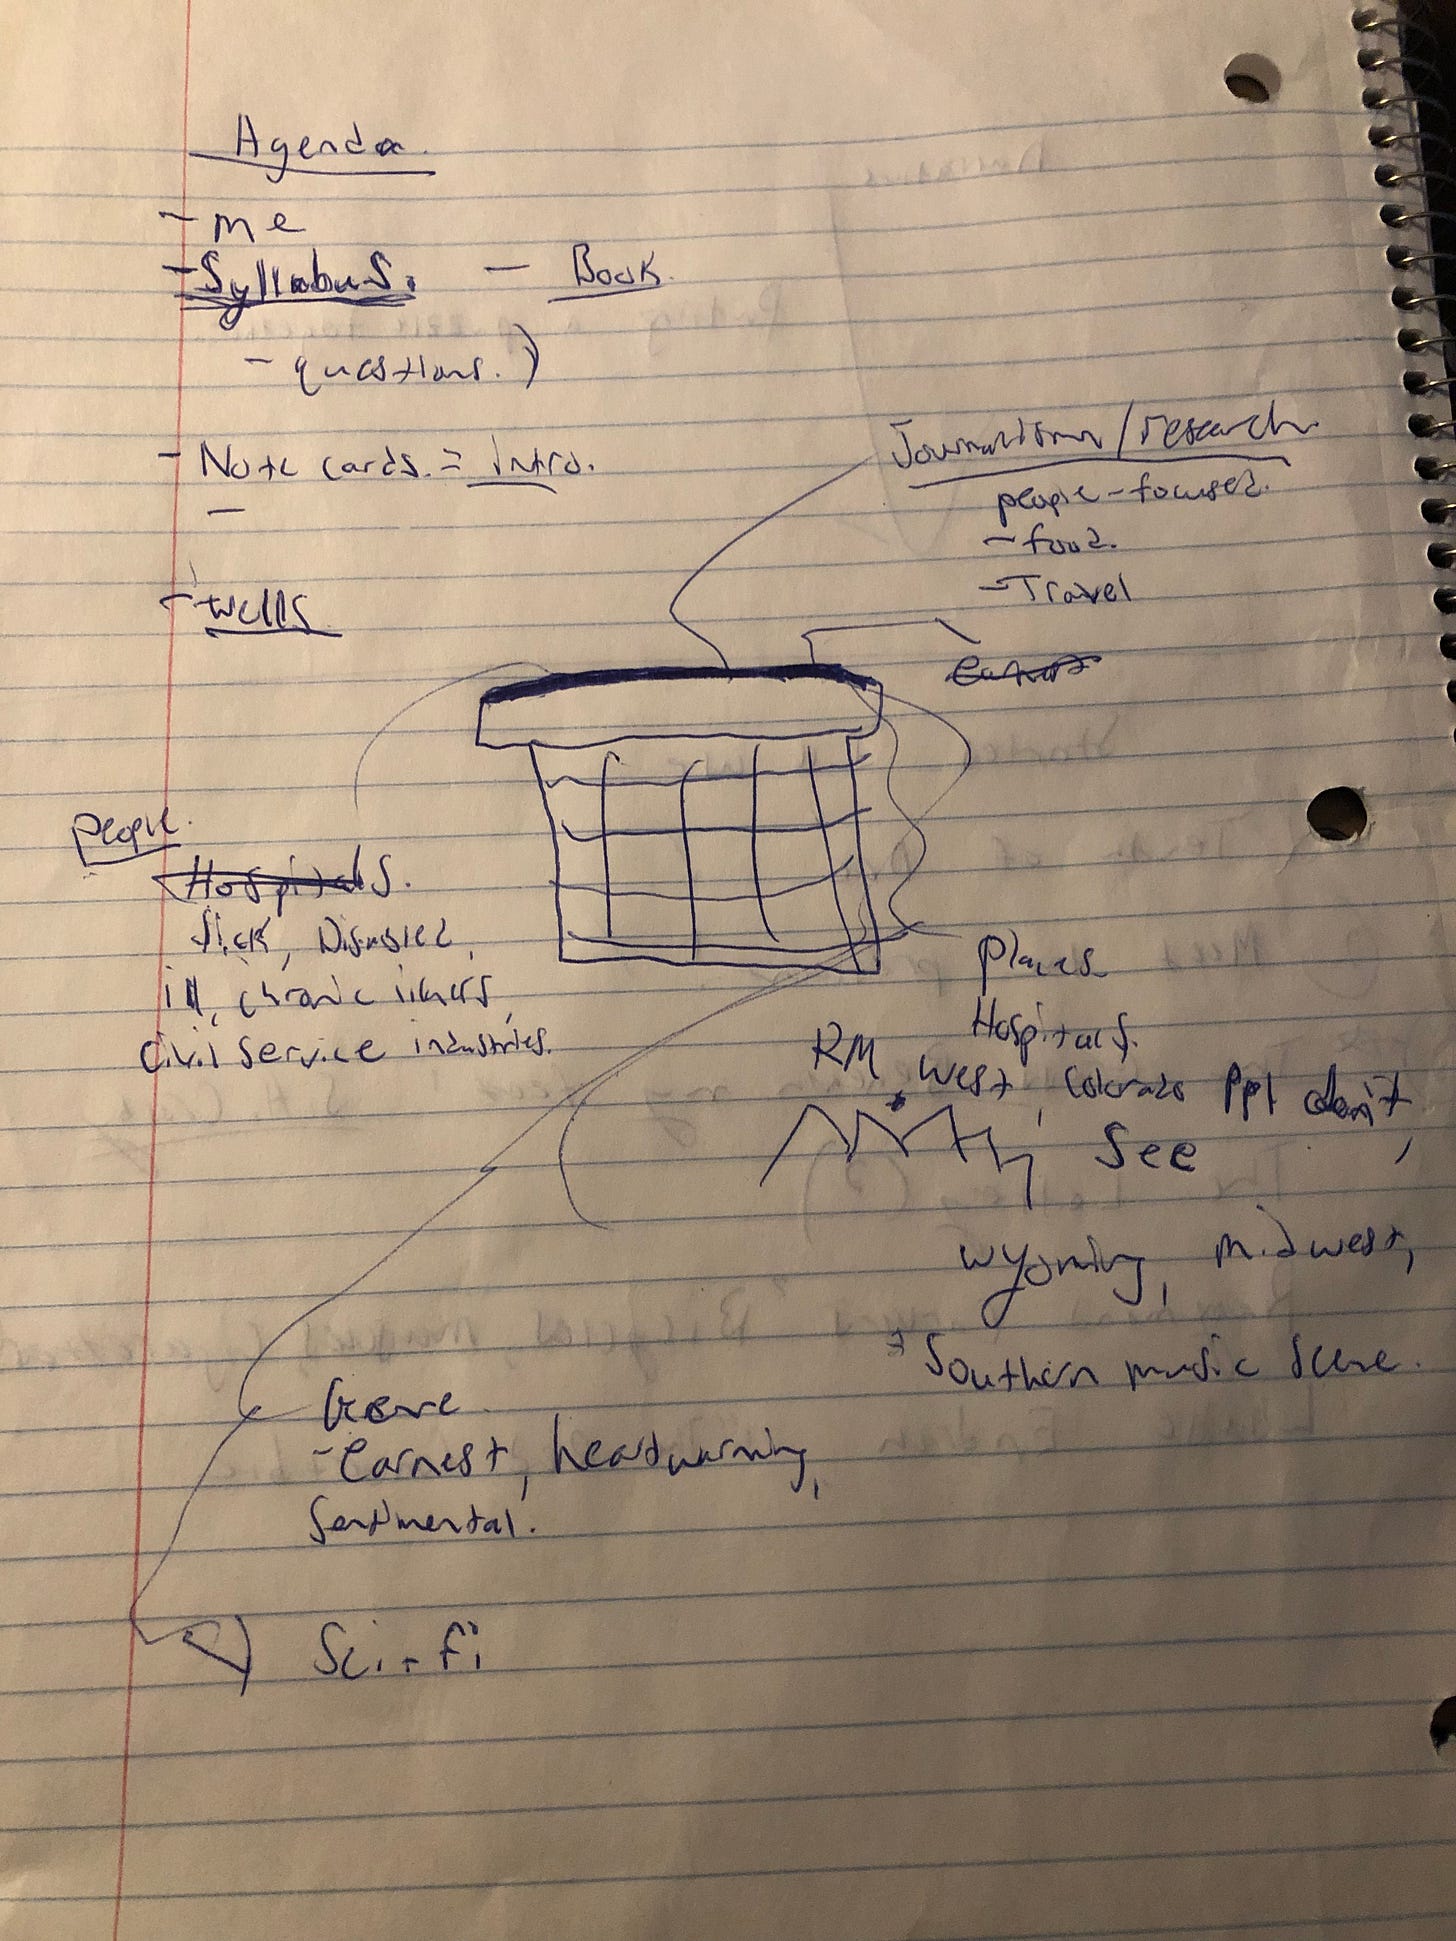 Agenda.
- me
- Syllabus. - Book.
- questions.)
- Note cards. = intro.
-
- wells
Journalism/research.
people-focused.
- food.
- Travel
People.
Hospitals.
Sick, Disabled,
ill, chronic illness,
Civil service industries.
Places
Hospitals.
RM West, Colorado Ppl don't,
See
Wyoming, midwest,
* Southern music scene.
Genre.
- earnest, heartwarming,
Sentimental.
Sci-fi